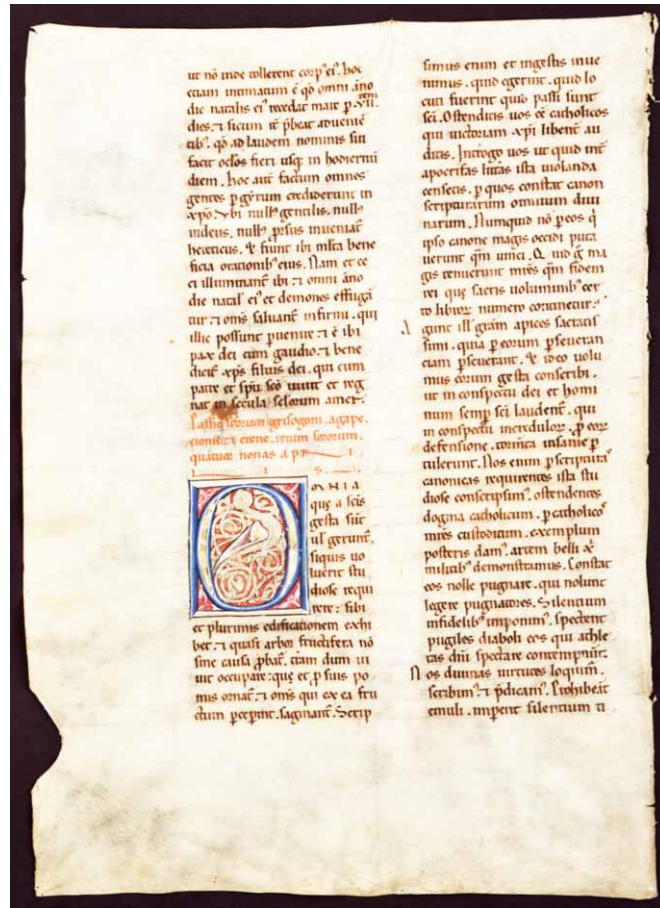 ut nō inde tollerent corpˀ eiˀ. hoc
etiam intimatum ē qđ omni āno
die natalis eiˀ recedat mare p. vii.
dies. ⁊ siccum it̄ p̄beat aduenie
tibˀ. qđ ad laudem nominis sui
facit dc̄s fieri usq; in hodiernū
diem. hoc aut̄ factum omnes
gentes p gẏrum crediderunt in
xp̄o. Vbi nullˀ gentilis. nullˀ
iudeus. nullˀ p̄rsus inueniat̄
hereticus. & fiunt ibi ml̄ta bene
ficia orationibˀ eius. Nam et ce
ci illuminant̄ ibi. ⁊ omni āno
die natalˀ eiˀ et demones effugā
tur. ⁊ om̄s saluant̄ infirmi. qui
illic possunt puenire. ⁊ ē ibi
pax dei cum gaudio. ⁊ bene
dicit̄ xp̄s filius dei. qui cum
patre et sp̄u sc̄o uiuit et reg
nat in secula sc̄lorum am̄.
Passio sc̄orum grisogoni. agape.
cionie. ⁊ erene. trium sororum.
quatuor nonas ap̄r
OMNIA
quę a sc̄is
gesta sūt
ul̄ gerunt̄.
siquis uo
luerit stu
diose requi
rere: sibi
et plurimis edificationem exhi
bet. ⁊ quasi arbor fructifera nō
sine causa p̄bat̄. etiam dum ui
uit occupare. quę et p̄ suis po
mis ornat̄. ⁊ om̄s qui ex ea fru
ctum pcepint. saginant̄. Scrip
simus enim et in gestis inue
nimus. quid egerint. quid lo
cuti fuerint quid passi sunt
sc̄i. Ostenditis uos eē catholicos
qui uictoriam xp̄i libent̄ au
ditis. Int̄rogo uos ut quid int̄
apocrifas litt̄as ista uiolanda
censetis. p quos constat canon
scripturarum omnium diui
narum. Numquid nō p eos q̄
ip̄so canone magis occidi puta
uerunt qm̄ uinci. Quid ḡ ma
gis tenuerunt mr̄es qm̄ fidem
rei que sacris uoluminibˀ cer
to librorꝝ numero continetur.
Agunt illˀ gr̄am apices sacratis
simi. quia p eorum pseueran
tiam pseuerant. & ideo uolu
mus eorum gesta conscribi.
ut in conspectu dei et homi
num semp sc̄i laudent̄. qui
in conspectu incredulorꝝ. p̄ eorꝝ
defensione. tormenta insanie p
tulerunt. Nos enim p scripturaˢ
canonicas requirentes ista stu
diose conscripsimˀ. ostendentes
dogma catholicum. p catholicoˢ
mr̄es custoditum. exemplum
posteris damˀ. artem belli &
militibˀ demonstramus. Constat
eos nolle pugnare. qui nolunt
legere pugnatores. Silentium
infidelibˀ imponimˀ. spectent
pugiles diaboli eos qui athle
tas dn̄i spectare contempnūt.
Nos diuinas uirtutes loquimˀ.
scribimˀ. ⁊ p̄dicamˀ. Prohibeat̄
emuli. imperent silentium ti